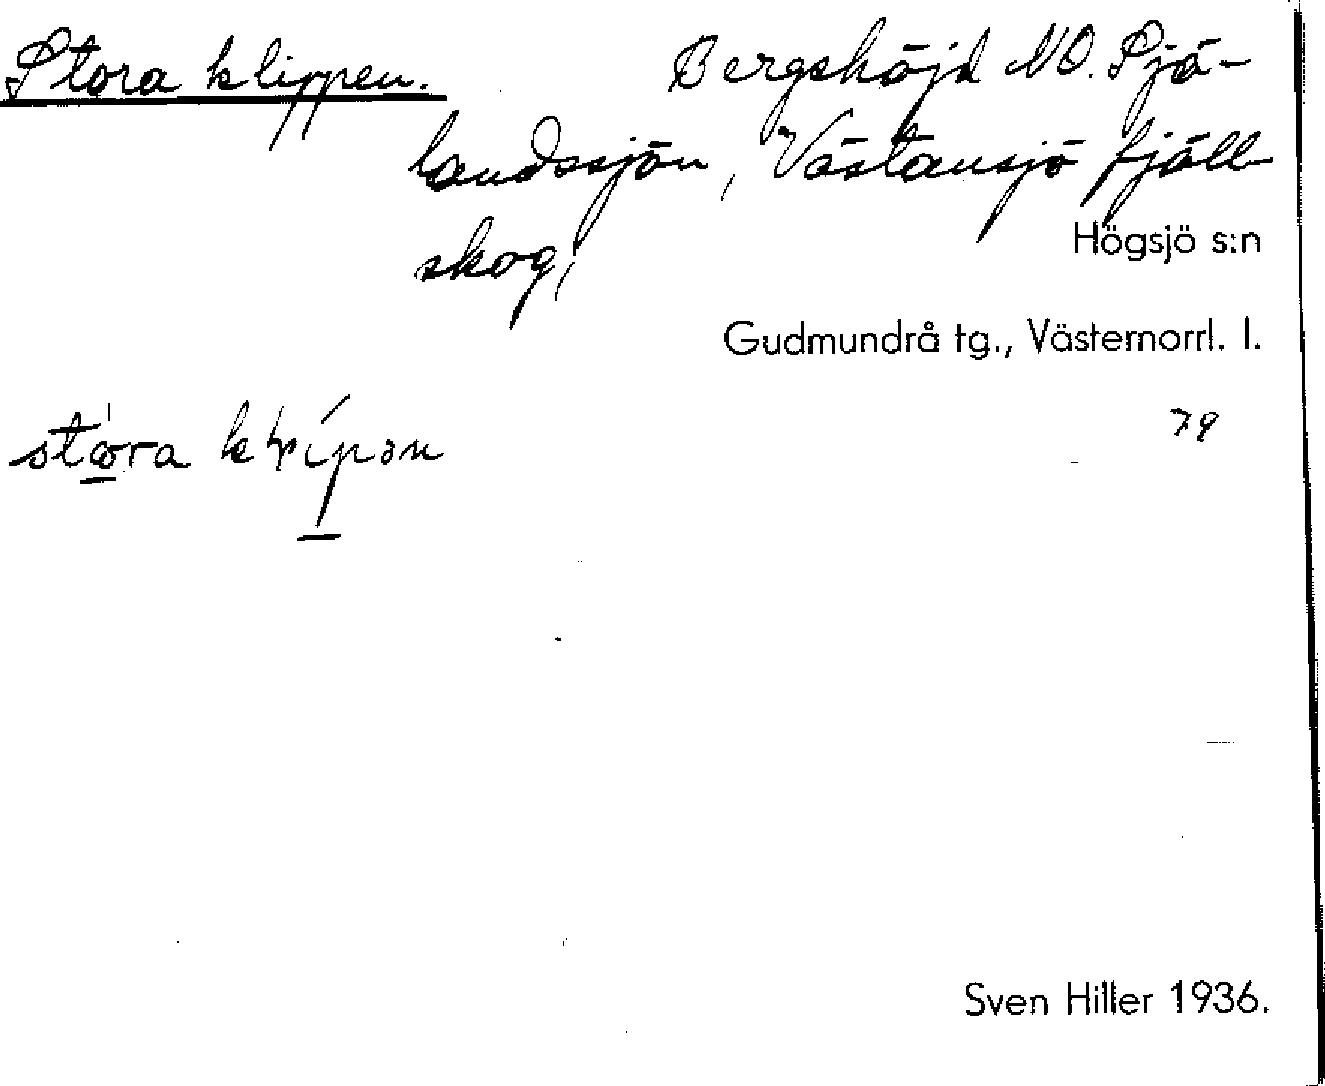 Stora klippen. Bergshöjd NO. Sjö-
landssjön, Västansjö fjäll-
skog,
Högsjö s:n
Gudmundrå tg., Västernorrl. l.
79
Sven Hiller 1936.